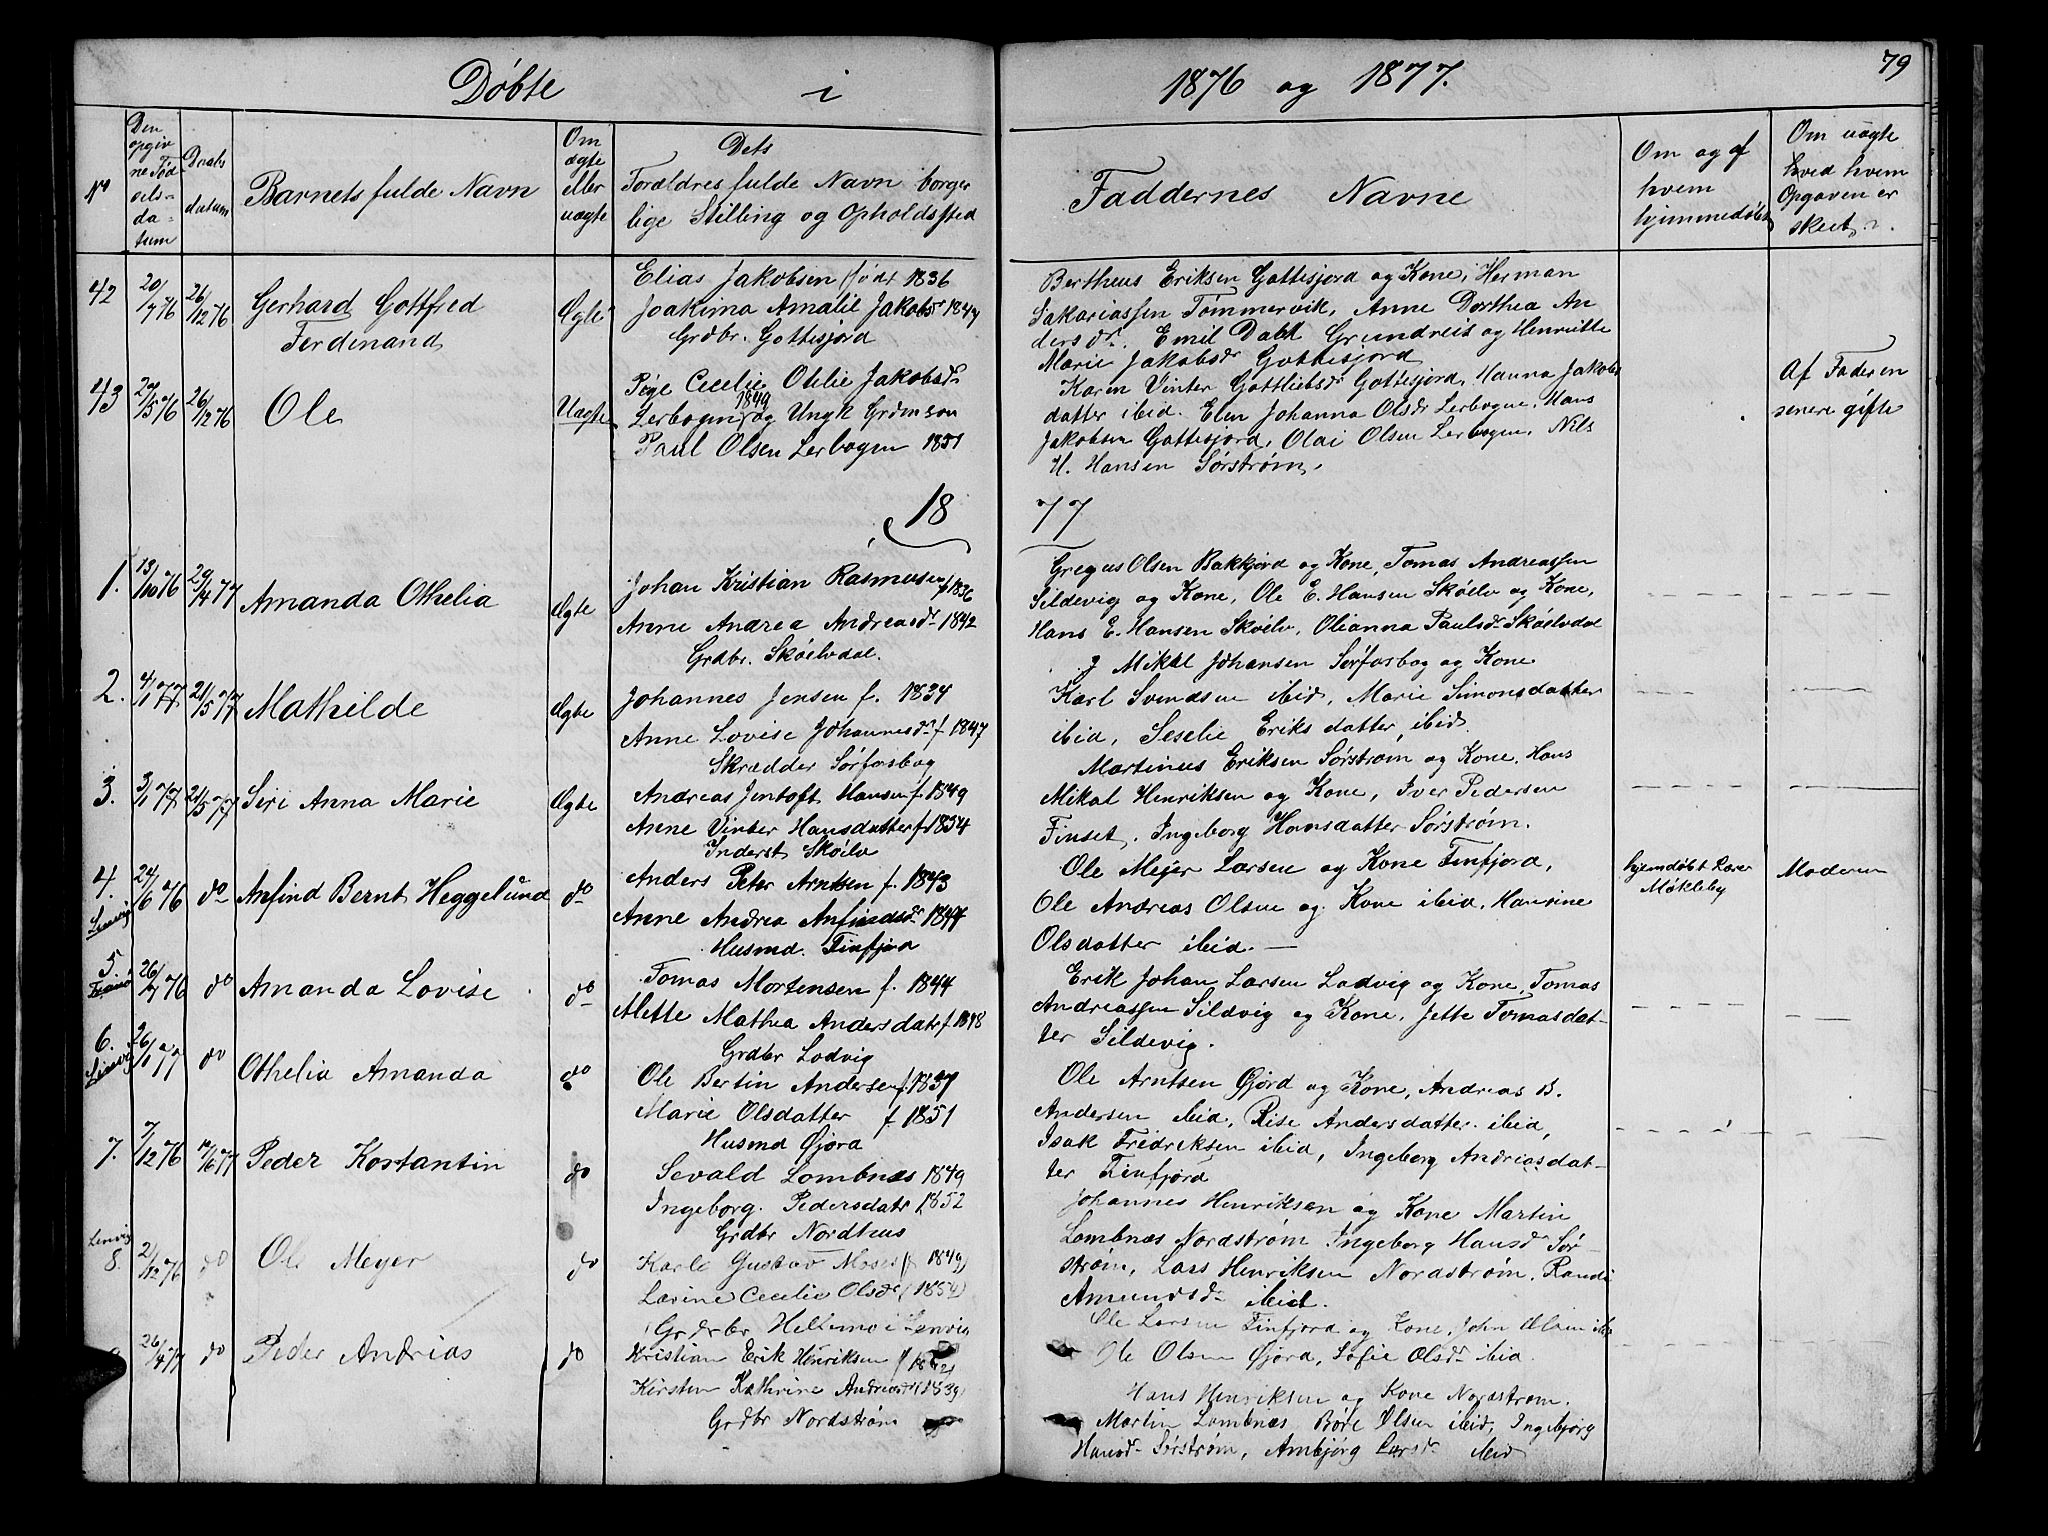 Døbte i 1876 og 1877.
79
No
Den opgivne Fødselsdatum
Daabsdatum
Barnets fulde Navn
Om ægte eller uægte
Dets
Forældres fulde Navn borger
lige Stilling og Opholdssted
Faddernes Navne
Om og af
hvem
hjemmedøbt
Om uægte
hved hvem
Opgaven er
skeet
42 20/7 76 26/12 76 Gerhard Gottfred
Ferdinand
Ægte
Elias Jakobsen født 1836
Joakima Amalie Jakobsdr 1844
Grdbr. Gottesjord
Bertheus Eriksen Gottesjord og Kone, Herman
Sakariassen Tømmervik, Anne Dorthea An
dersdr. Emil Dahl Grundreis og Henriette
Marie Jakobsdr Gottesjord
43 29/5 76 26/12 76 Ole
Uægte
Pige Cecelie Otelie Jakobsdr
Lerbogen 1849 og Ungk Grdm søn
Paul Olsen Lerbogen 1851
Karen Vinter Gottliebsdr Gottesjord, Hanna Jakobs
datter ibid. Elen Johanna Olsdr Lerbogne, Hans
Jakobsen Gottesjord, Olai Olsen Lerbogen, Nils
H. Hansen Sørstrøm,
Af Faderen
senere gifte
18 77
1. 13/10 76 29/4 77 Amanda Othelia
Ægte
Johan Kristian Rasmusen f 1836
Anne Andrea Andreasdr 1842
Grdbr. Skøelvdal.
Gregus Olsen Bakkjord og Kone, Tomas Andreassen
Sildevig og Kone, Ole E. Hansen Skøelv og Kone,
Hans E. Hansen Skøelv, Olianna Paulsdr Skøelvdal
2. 4/1 77 21/5 77 Mathilde
Ægte
Johannes Jensen f. 1834
Anne Lovise Johannesdr f 1847
Skrædder Sørfosbog
J Mikal Johansen Sørfosbog og Kone
Karl Svendsen ibid, Marie Simonsdatter
ibid, Seselie Eriksdatter ibid.
3. 3/1 77 21/5 77 Siri Anna Marie
Ægte
Andreas Jentoft Hansen f. 1849
Anne Vinter Hansdatter f 1834
Inderst Skøelv
Martinus Eriksen Sørstrøm og Kone, Hans
Mikal Henriksen og Kone, Iver Pedersen
Finset, Ingeborg Hansdatter Sørstrøm.
4. Lenvig 24/6 76 do Anfind Bernt Heggelund
do
Anders Peter Arntsen f. 1843
Anne Andrea Anfindsdr 1844
Husmd. Finfjord
Ole Mejer Larsen og Kone Finfjord,
Ole Andreas Olsen og Kone ibid, Hansine
Olsdatter ibid. —
hjemdøbt Lærer
Møkleby
Moderen
5. Tranø 26/7 76 do Amanda Lovise
do
Tomas Mortensen f. 1844
Mette Mathea Andersdatr f 1848
Grdbr Lodvig
Erik Johan Larsen Lodvig og Kone, Tomas
Andreassen Sildvig og Kone, Jette Tomasdat-
ter Sildevig.
6. Lenvig 26/1 77 do Othelia Amanda
do
Ole Bertin Andersen f. 1837
Marie Olsdatter f 1851
Husmd Gjord
Ole Arntsen Gjord og Kone, Andreas B.
Andersen ibid, Rise Andersdatter ibid,
Isak Fredriksen ibid, Ingeborg Andreasdat-
ter Finfjord
7. 7/12 76 19/6 77 Peder Kostantin
do
Sevald Lombnæs 1849
Ingeborg Pedersdatr 1852
Grdbr Nordhus
Johannes Henriksen og Kone Martin
Lombnæs Nordstrøm Ingeborg Hansdr Sør-
strøm, Lars Henriksen Nordstrøm, Randi
Amundsdr ibid.
Lenvig
8. 2/12 76 do Ole Meyer
do
Karle Gustav Moses f 1849
Lavine Cecelie Olsdr 1854
Grdbr Hellemo i Lenvig
Ole Larsen Finfjord og Kone, John
Ole Olsen Gjord, Sofie Olsdr ibid.
26/4 77 do Peder Andrias
do
Kristian Erik Henriksen
Kirsten Kathrine Andreasdr 1839
Grdbr Nordstrøm
Hans Henriksen og Kone Nordstrøm.
Martin Lombnæs Børe Olsen ibid, Ingebjørg
Hansdr Sørstrøm, Ambjørg Larsdr ibid